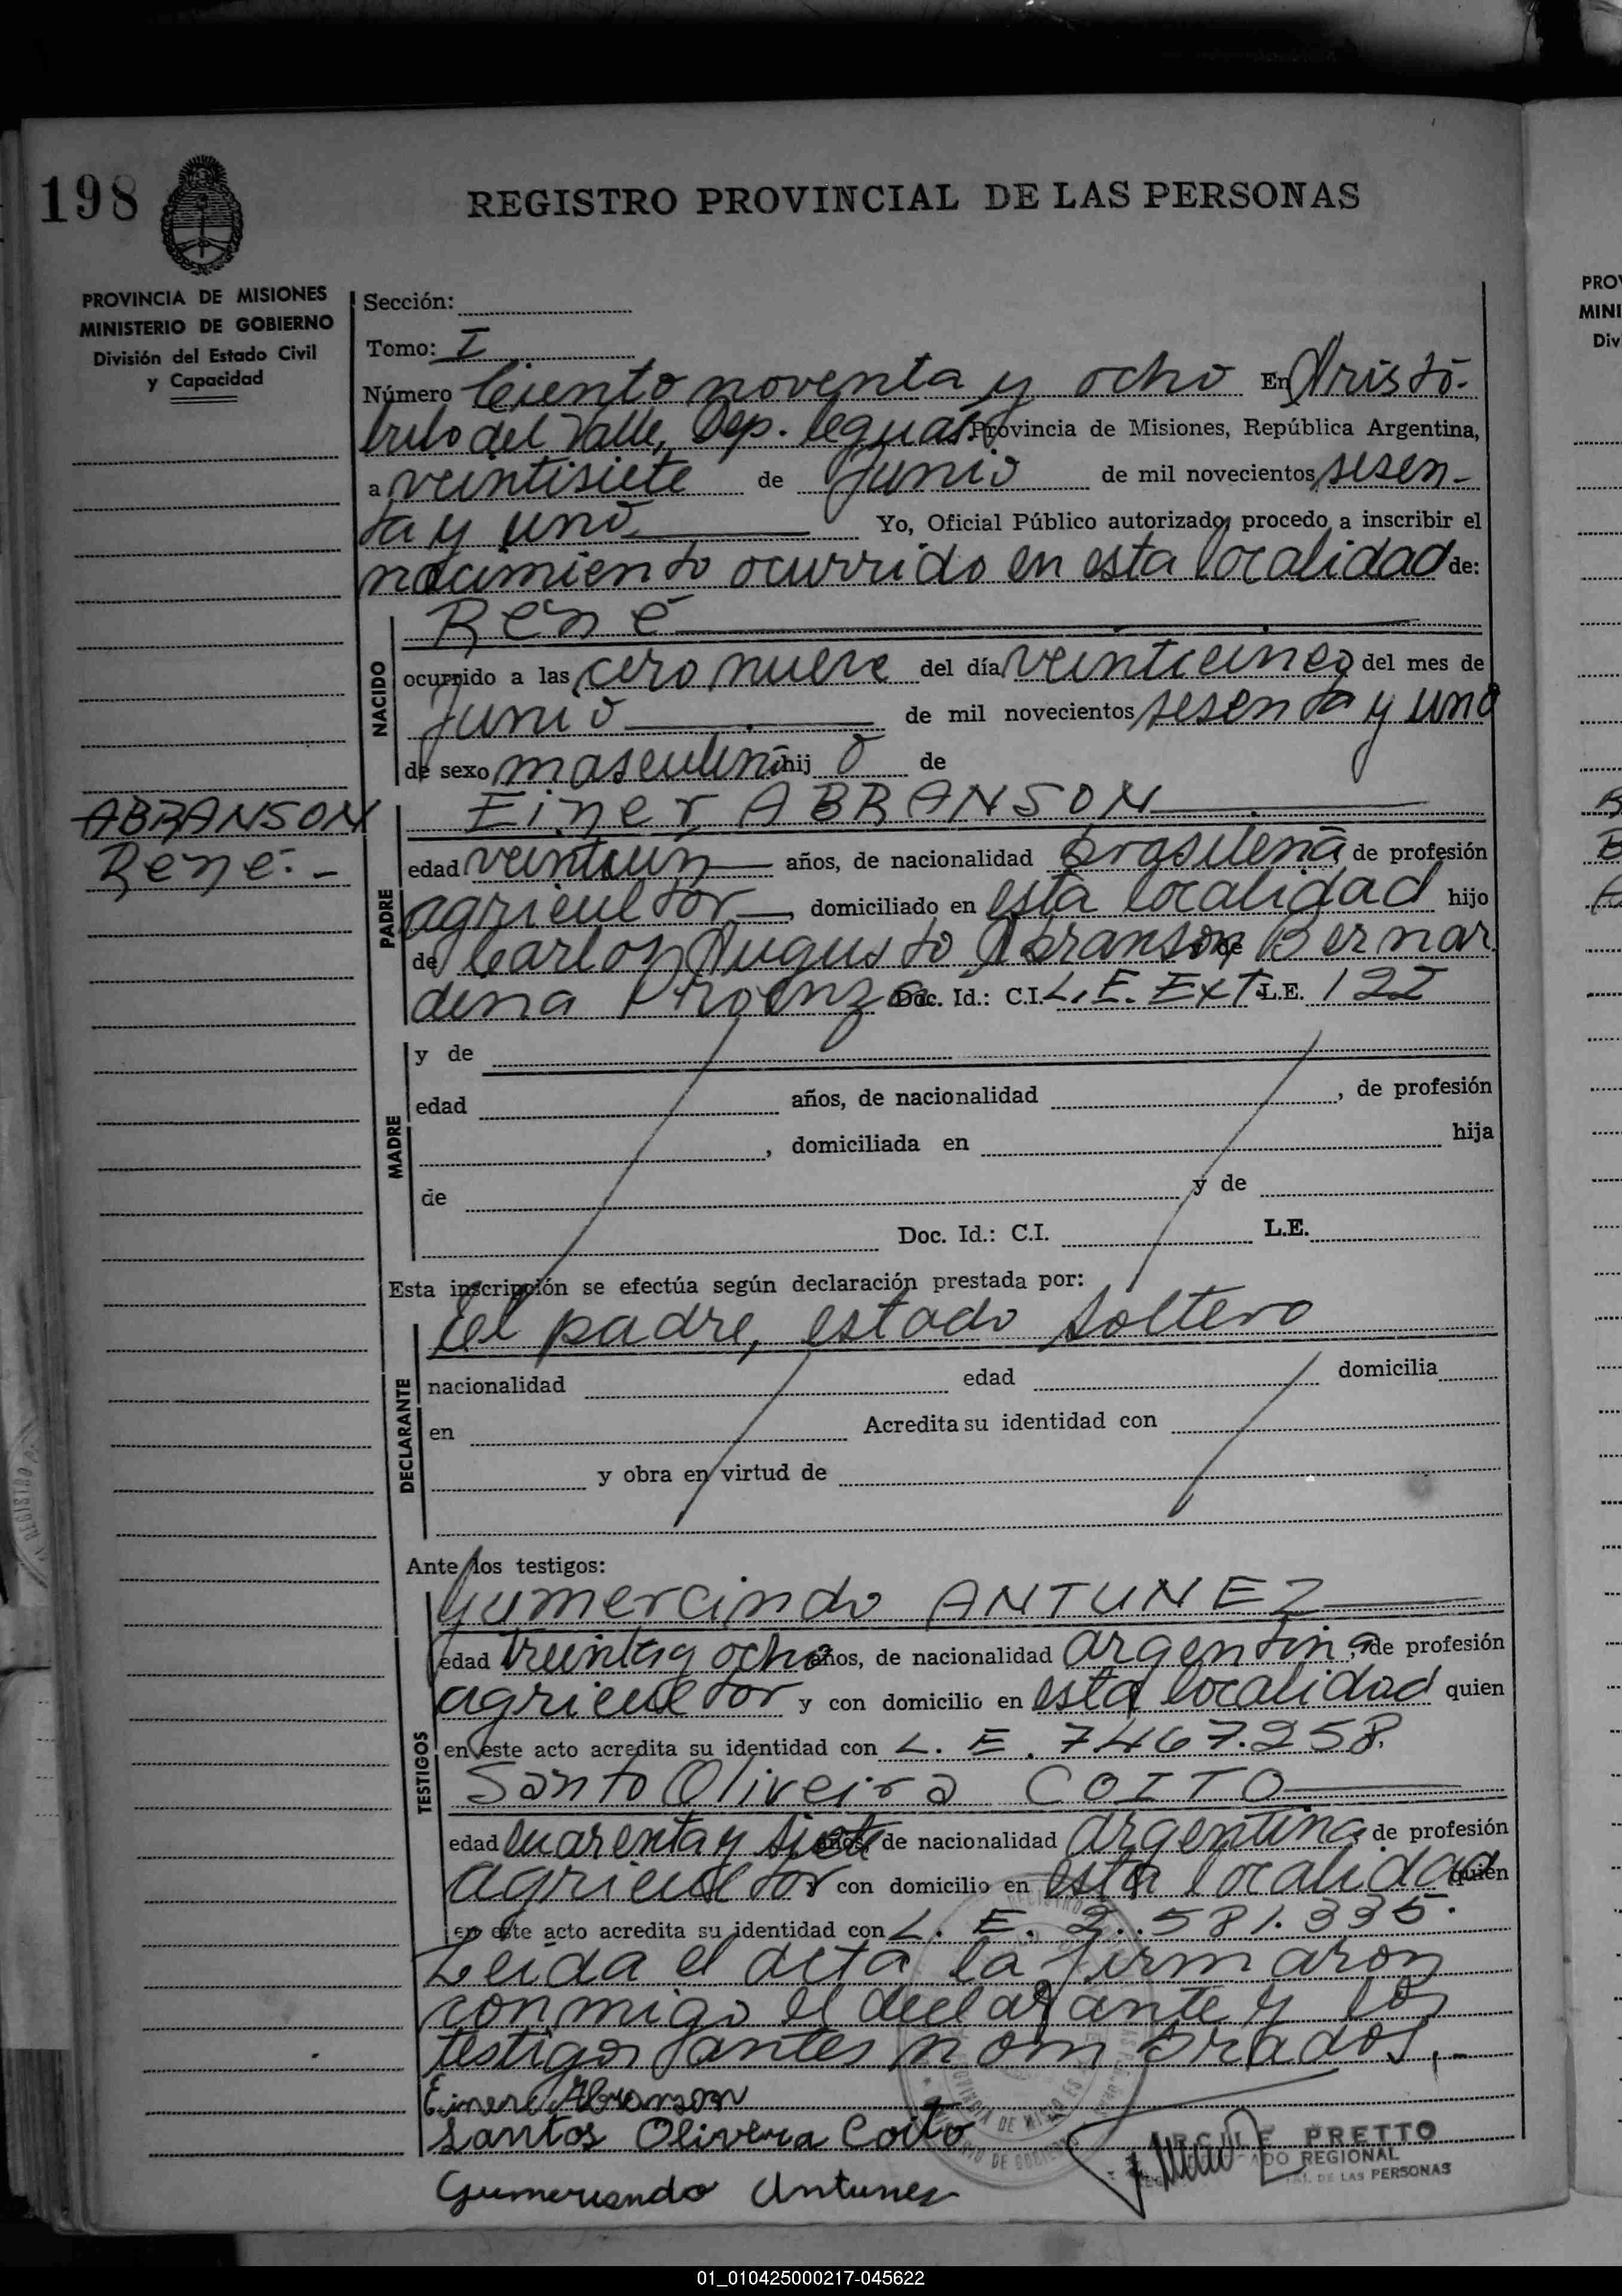 198
REGISTRO PROVINCIAL DE LAS PERSONAS
PROVINCIA DE MISIONES
MINISTERIO DE GOBIERNO
División del Estado Civil
y Capacidad
Sección:
Tomo: I
Número Ciento noventa y ocho En Aristó-
bulo del Valle, Dep. Cguás. Provincia de Misiones, República Argentina,
a veintisiete de Junio de mil novecientos sesen-
ta y uno Yo, Oficial Público autorizado, procedo a inscribir el
nacimiento ocurrido en esta localidad de:
René
NACIDO
ocurrido a las cero nueve del día veinticinco del mes de
Junio de mil novecientos sesenta y uno
de sexo masculino hij o de
ABRANSON
René.-
PADRE
Einer ABRANSON
edad veintiún años, de nacionalidad brasileña, de profesión
agricultor, domiciliado en esta localidad hijo
de Carlos Augusto Abranson y de Bernar
dina Proenza Doc. Id.: C.I. L.E. Ext. L.E. 122
MADRE
y de
edad años, de nacionalidad , de profesión
, domiciliada en hija
de y de
Doc. Id.: C.I. L.E.
Esta inscripción se efectúa según declaración prestada por:
El padre, estado soltero
DECLARANTE
nacionalidad edad domicilia
en Acredita su identidad con
y obra en virtud de
Ante los testigos:
TESTIGOS
Gumercindo ANTUNEZ
edad treinta y ocho años, de nacionalidad argentina, de profesión
agricultor y con domicilio en esta localidad quien
en este acto acredita su identidad con L. E. 7467.258.
Santo Oliveira COITO
edad cuarenta y siete años, de nacionalidad argentina, de profesión
agricultor y con domicilio en esta localidad quien
en este acto acredita su identidad con L. E. 2.581.335.
Leída el acta la firmaron
conmigo el declarante y los
testigos antes nombrados.-
Einer Abranson
Santos Olivera Coito
Gumersendo Antunez
PRETTO
REGIONAL
DE LAS PERSONAS
01_010425000217-045622